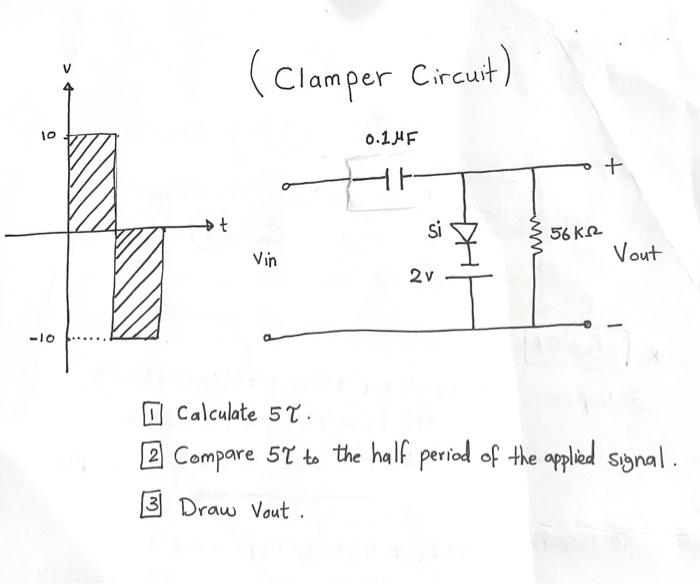 (Clamper Circuit)
V
10
t
-10
0.1μF
Si
2v
56KΩ
+
Vin
Vout
-
1 Calculate 5τ.
2 Compare 5τ to the half period of the applied signal.
3 Draw Vout.